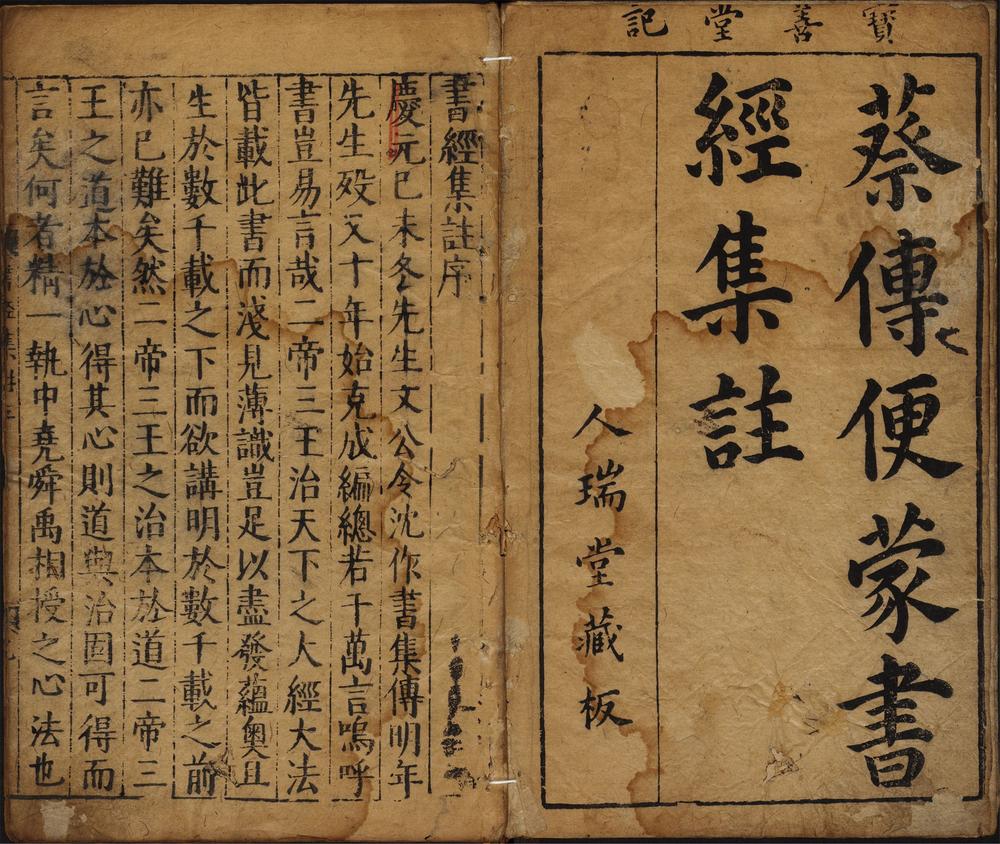 寶善堂記
蔡傳便蒙書
經集註
人瑞堂藏板
書經集註序
慶元己未冬先生文公令沈作書集傳明年
先生歿又十年始克成編總若干萬言嗚呼
書豈易言哉二帝三王治天下之大經大法
皆載此書而淺見薄識豈足以盡發蘊奧且
生於數千載之下而欲講明於數千載之前
亦已難矣然二帝三王之治本於道二帝三
王之道本於心得其心則道與治固可得而
言矣何者精一執中堯舜禹相授之心法也